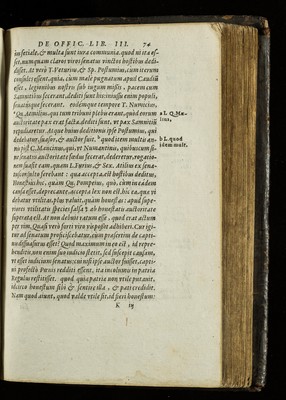 DE OFFIC. LIB. III. 74
in fœtiale, & multa sunt iura communia. quod ni ita es-
set, nunquam claros viros senatus vinctos hostibus dedi-
disset. At verò T. Veturius, & Sp. Postumius, cum iterum
consules essent, quia, cum male pugnatum apud Caudiũ
esset, legionibus nostris sub iugum missis, pacem cum
Samnitibus fecerant, dediti sunt his: iniussu enim populi,
senatusque fecerant. eodémque tempore T. Numicius,
a Q. Aemilius, qui tum tribuni plebis erant, quòd eorum
auctoritate pax erat facta, dediti sunt, vt pax Samnitiũ
repudiaretur. Atque huius deditionis ipse Postumius, qui
dedebatur, suasor, & auctor fuit. b quod idem multis an-
nis pòst C. Mancinus, qui, vt Numantinis, quibuscum si-
ne senatus auctoritate fœdus fecerat, dederetur, rogatio-
nem suasit eam, quam L. Furius, & Sex. Atilius ex sena-
tusconsulto ferebant: qua accepta, est hostibus deditus.
Honestius hic, quàm Q. Pompeius, quò, cùm in eadem
causa esset, deprecante, accepta lex non est. hic ea, quæ vi-
debatur vtilitas, plus valuit, quàm honestas: apud supe-
riores vtilitatis species falsa ab honestatis auctoritate
superata est. At non debuit ratum esse, quod erat actum
per vim. Quasi verò forti viro vis possit adhiberi. Cur igi-
tur ad senatum proficiscebatur, cum præsertim de capti-
nu dissuasurus esset? Quod maximum in eo est, id repre-
henditis. non enim suo iudicio stetit, sed suscepit causam,
vt esset iudicium senatus: cui nisi ipse auctor fuisset, capti-
ui profectò Pœnis redditi essent. ita incolumis in patria
Regulus restitisset. quod quia patriæ non vtile putauit,
idcirco honestum sibi & sentire illa, & pati credidit.
Nam quod aiunt, quod valde vtile sit, id fieri honestum:
K ij
a L Q. Mæ-
lius,
b L. quod
idem mult.